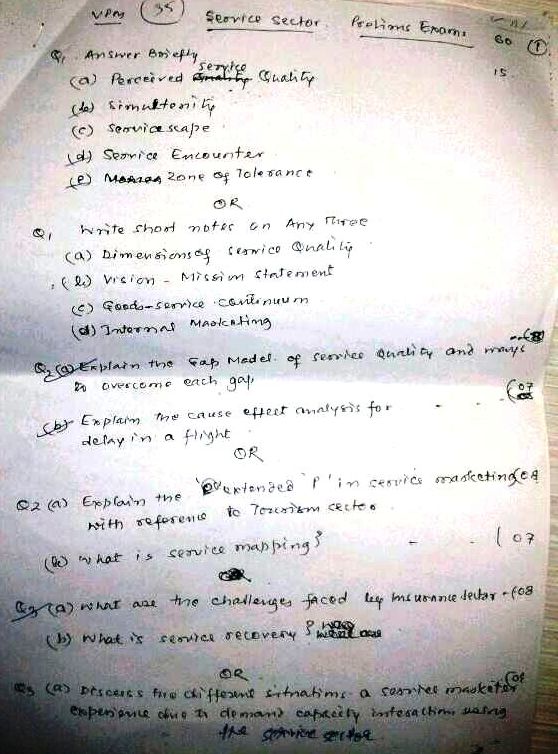 VPM 35 Service Sector. Prelims Exams 60 1
Q1 Answer Briefly 15
(a) Perceived service Quality
(b) Simultenity
(c) Servicescape
(d) Service Encounter
(e) Zone of Tolerance
OR
Q1 Write short notes on Any Three
(a) Dimensions of Service Quality
(b) Vision - Mission Statement
(c) Goods-service continuum
(d) Internal Marketing
Q2 (a) Explain the Gap Model of service Quality and ways
to overcome each gap
(b) Explain the cause effect analysis for - - (07
delay in a flight
OR
Q2 (a) Explain the extended 'P' in service marketing (08
with reference to Tourism sector.
(b) What is service mapping? - (07
Q3 (a) what are the challenges faced by Insurance sector - (08
(b) What is service recovery?
OR
Q3 (a) Discuss the different situations a service marketer (08
experience due to demand capacity interaction using
the service sector